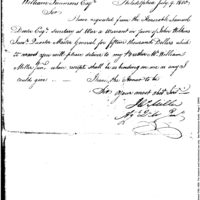 William Simmons Esqr. Philadelphia July 9. 1800.
Sir
I have requested from the Honorable Samuel
Dexter Esqr. Secretary at War a Warrant in favor of John Wilkins
Junr. Quarter Master General for fifteen thousand Dollars which
warrant you will please deliver to my Brother Mr. William
Miller Junr. whose receipt shall be as binding on me as any I
could give
I have the Honor to be
Sir Your most obt. Servt.